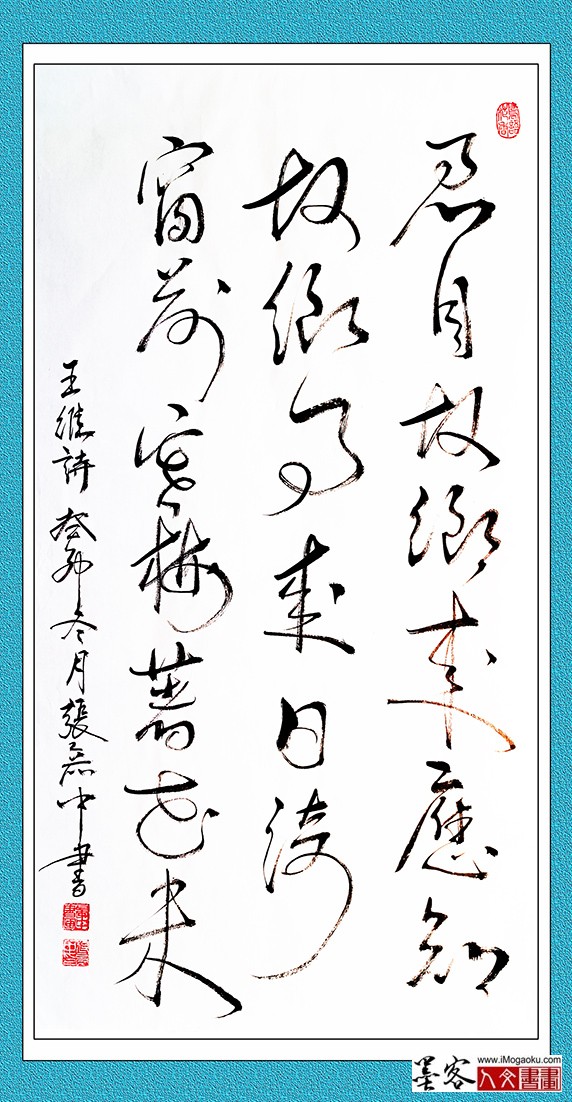 君自故鄉來應知
故鄉事來日綺
窗前寒梅著花未
王維詩 癸卯冬月張中書
墨客
www.iMogaoku.com
人文書畫